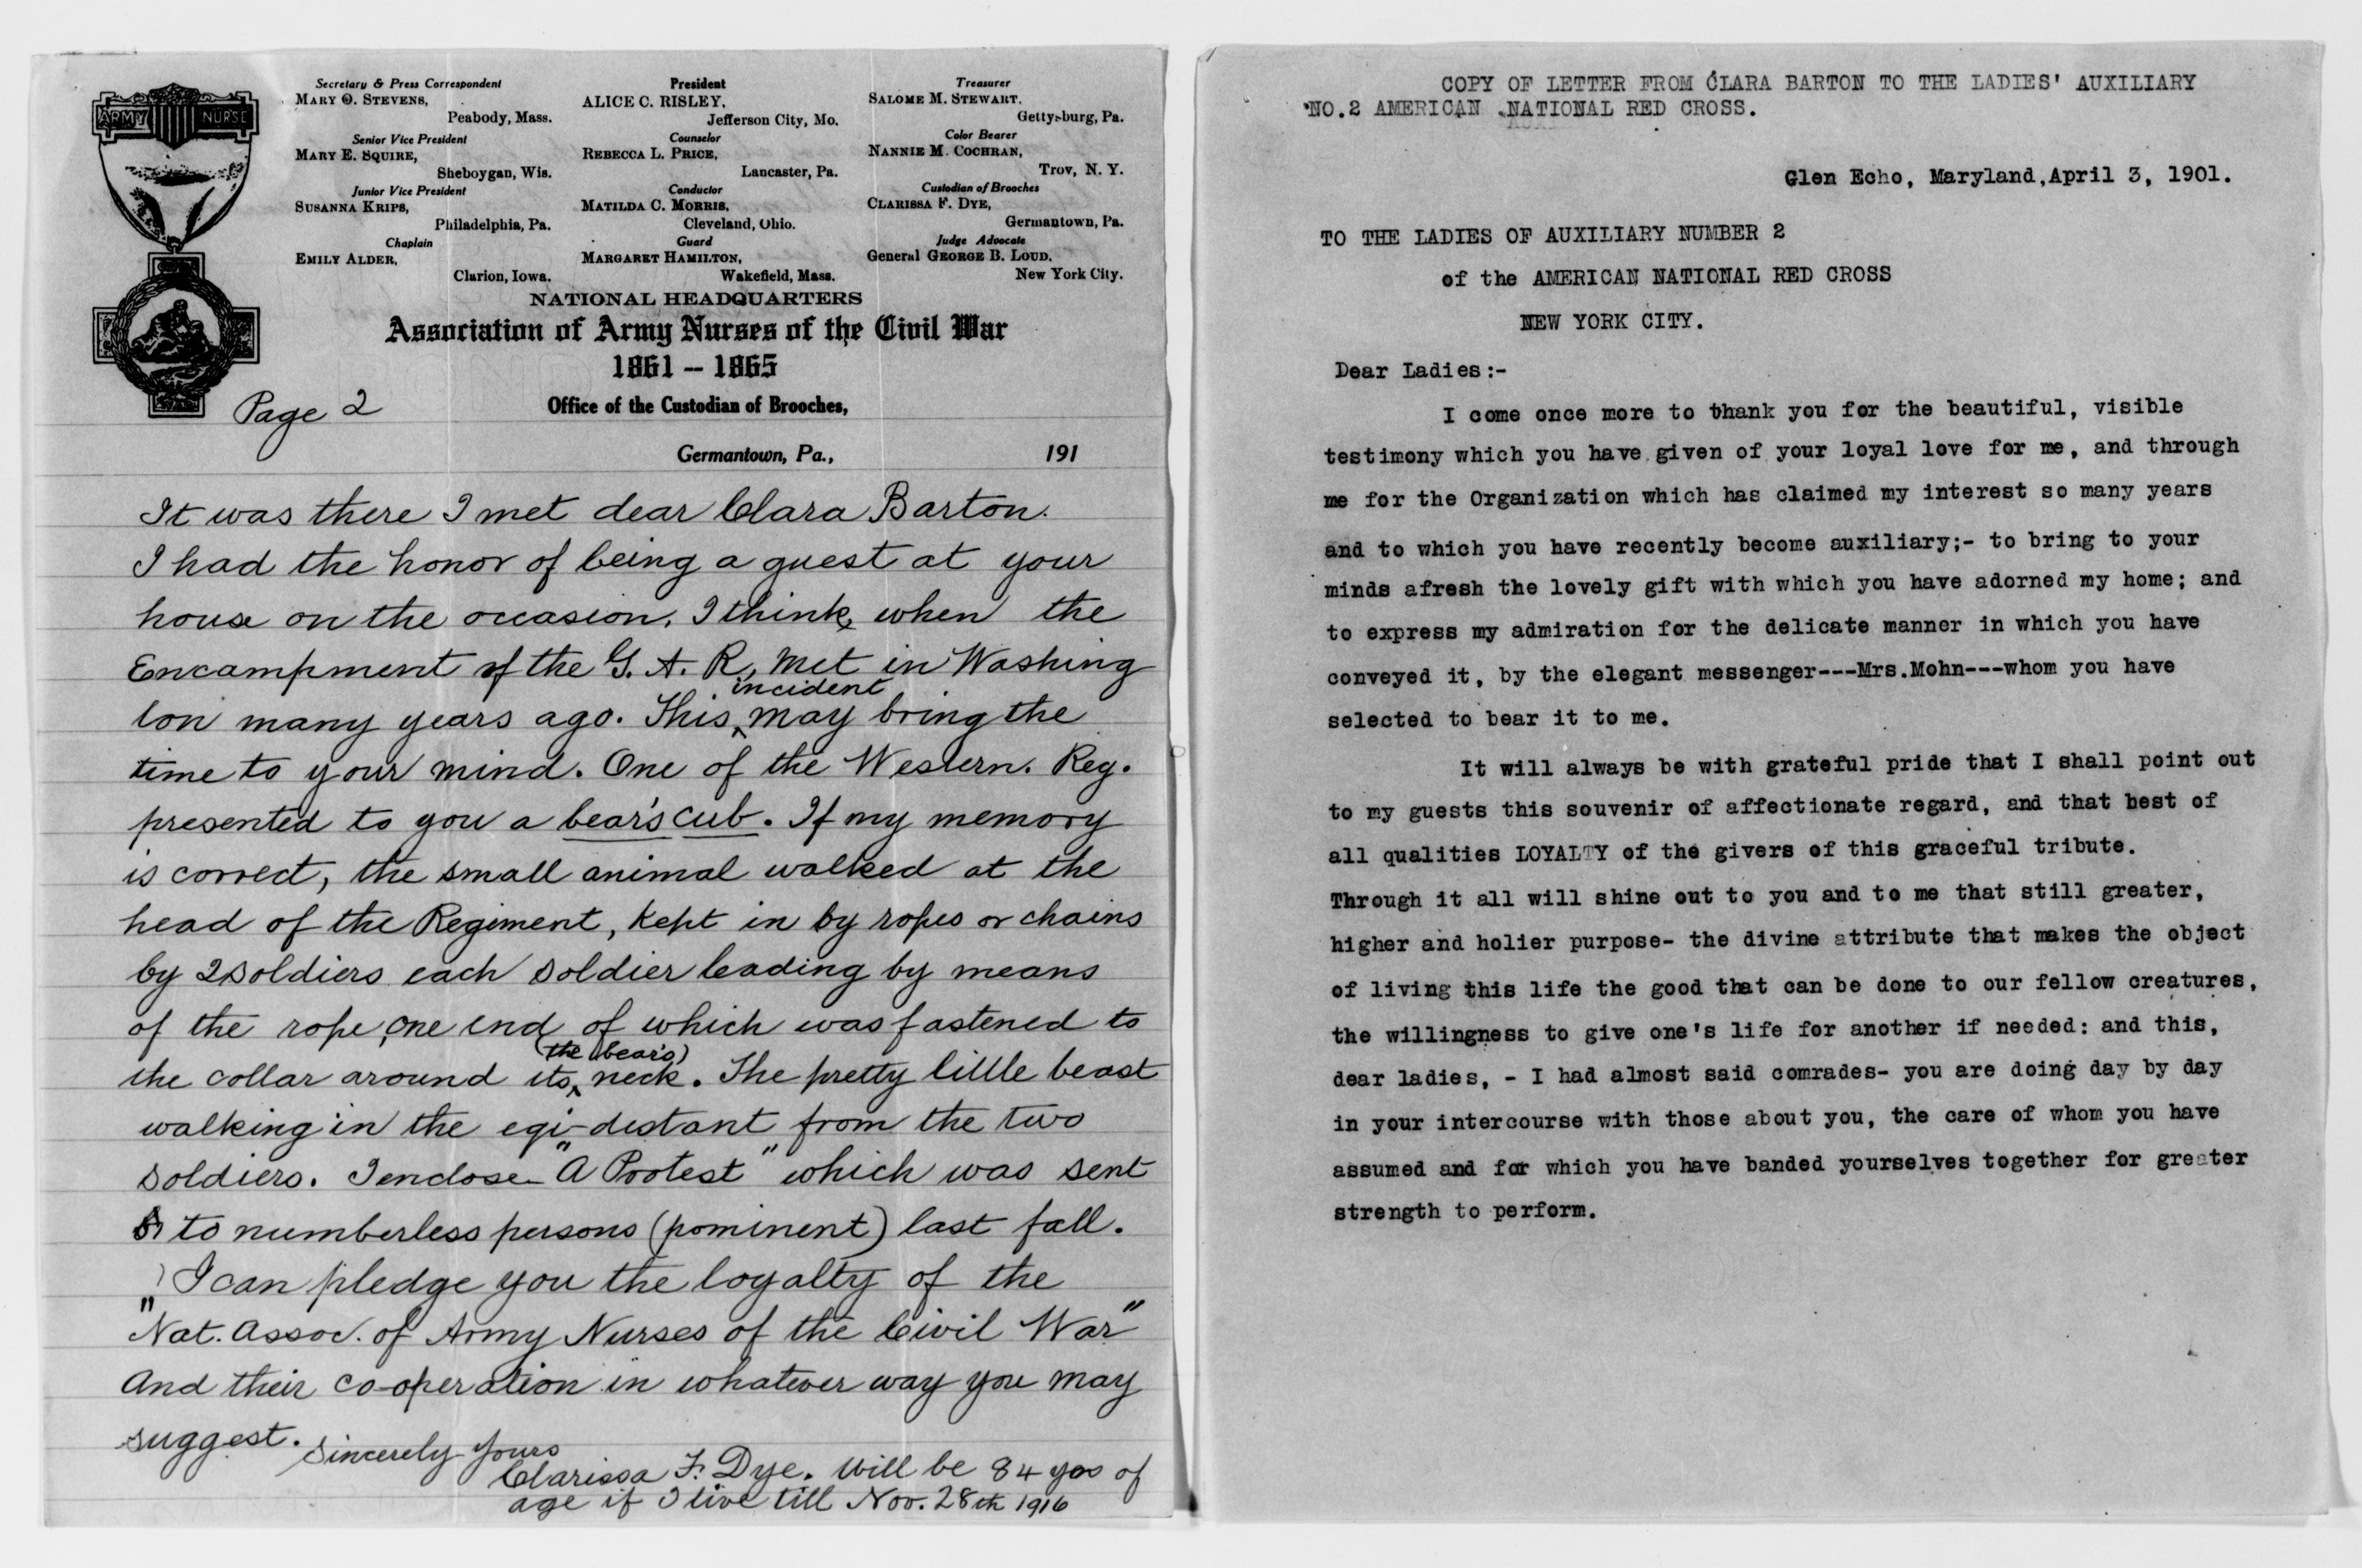 ARMY NURSE
Secretary & Press Correspondent
MARY O. STEVENS,
Peabody, Mass.
Senior Vice President
MARY E. SQUIRE,
Sheboygan, Wis.
Junior Vice President
SUSANNA KRIPS,
Philadelphia, Pa.
Chaplain
EMILY ALDER,
Clarion, Iowa.
President
ALICE C. RISLEY,
Jefferson City, Mo.
Counselor
REBECCA L. PRICE,
Lancaster, Pa.
Conductor
MATILDA C. MORRIS,
Cleveland, Ohio.
Guard
MARGARET HAMILTON,
Wakefield, Mass.
Treasurer
SALOME M. STEWART,
Gettysburg, Pa.
Color Bearer
NANNIE M. COCHRAN,
Troy, N. Y.
Custodian of Brooches
CLARISSA F. DYE,
Germantown, Pa.
Judge Advocate
General GEORGE B. LOUD,
New York City.
NATIONAL HEADQUARTERS
Association of Army Nurses of the Civil War
1861 -- 1865
Office of the Custodian of Brooches,
Page 2
Germantown, Pa., 191
It was there I met dear Clara Barton.
I had the honor of being a guest at your
house on the occasion, I think, when the
Encampment of the G. A. R. met in Washing
ton many years ago. This incident may bring the
time to your mind. One of the Western. Reg.
presented to you a bear's cub. If my memory
is correct, the small animal walked at the
head of the Regiment, kept in by ropes or chains
by 2 soldiers each soldier leading by means
of the rope, one end of which was fastened to
the collar around its (the bear's) neck. The pretty little beast
walking in the eqi-distant from the two
soldiers. I enclose "A Protest" which was sent
to numberless persons (pominent) last fall.
I can pledge you the loyalty of the
"Nat. Assoc. of Army Nurses of the Civil War"
And their co-operation in whatever way you may
suggest. Sincerely yours
Clarissa F. Dye. Will be 84 yrs of
age if I live till Nov. 28th 1916
COPY OF LETTER FROM CLARA BARTON TO THE LADIES' AUXILIARY
NO.2 AMERICAN NATIONAL RED CROSS.
Glen Echo, Maryland,April 3, 1901.
TO THE LADIES OF AUXILIARY NUMBER 2
of the AMERICAN NATIONAL RED CROSS
NEW YORK CITY.
Dear Ladies:-
I come once more to thank you for the beautiful, visible
testimony which you have given of your loyal love for me, and through
me for the Organization which has claimed my interest so many years
and to which you have recently become auxiliary;- to bring to your
minds afresh the lovely gift with which you have adorned my home; and
to express my admiration for the delicate manner in which you have
conveyed it, by the elegant messenger---Mrs.Mohn---whom you have
selected to bear it to me.
It will always be with grateful pride that I shall point out
to my guests this souvenir of affectionate regard, and that best of
all qualities LOYALTY of the givers of this graceful tribute.
Through it all will shine out to you and to me that still greater,
higher and holier purpose- the divine attribute that makes the object
of living this life the good that can be done to our fellow creatures,
the willingness to give one's life for another if needed: and this,
dear ladies, - I had almost said comrades- you are doing day by day
in your intercourse with those about you, the care of whom you have
assumed and for which you have banded yourselves together for greater
strength to perform.